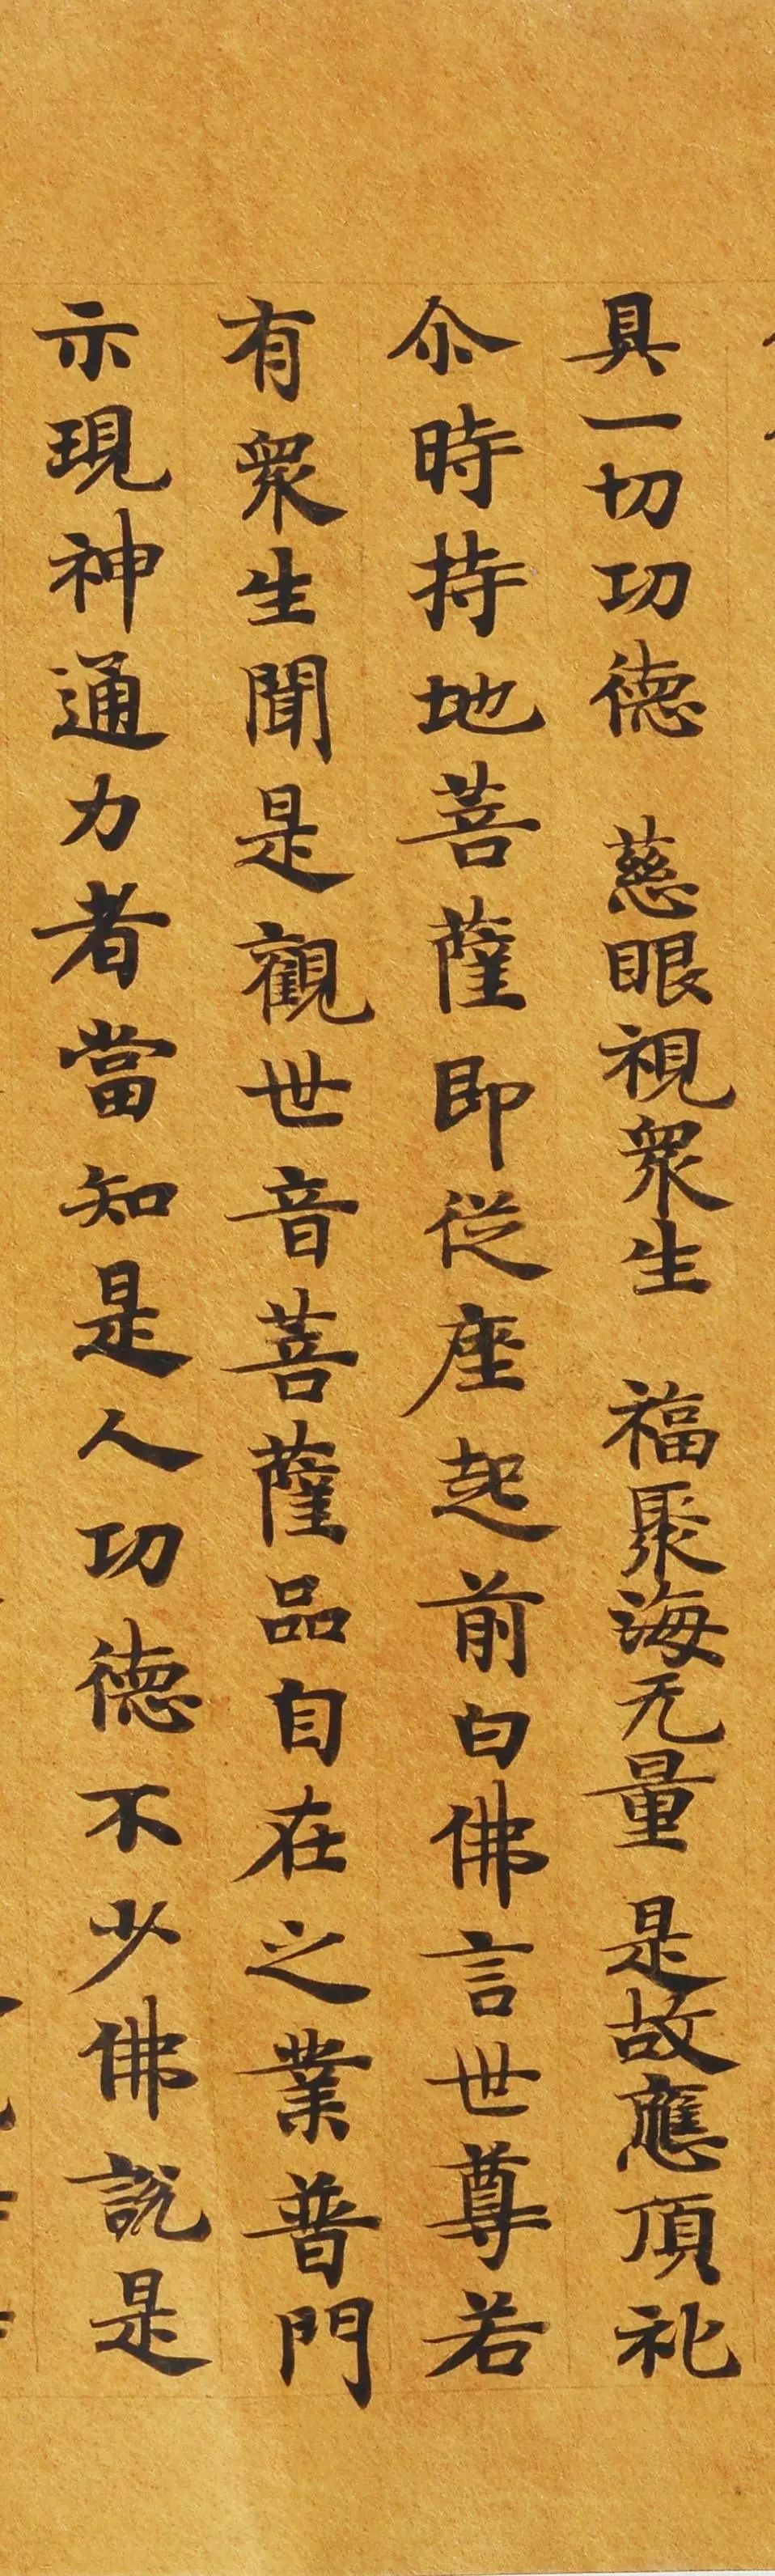 具一切功德　慈眼視衆生　福聚海无量　是故應頂礼
尒時持地菩薩即從座起前白佛言世尊若
有衆生聞是觀世音菩薩品自在之業普門
示現神通力者當知是人功德不少佛說是